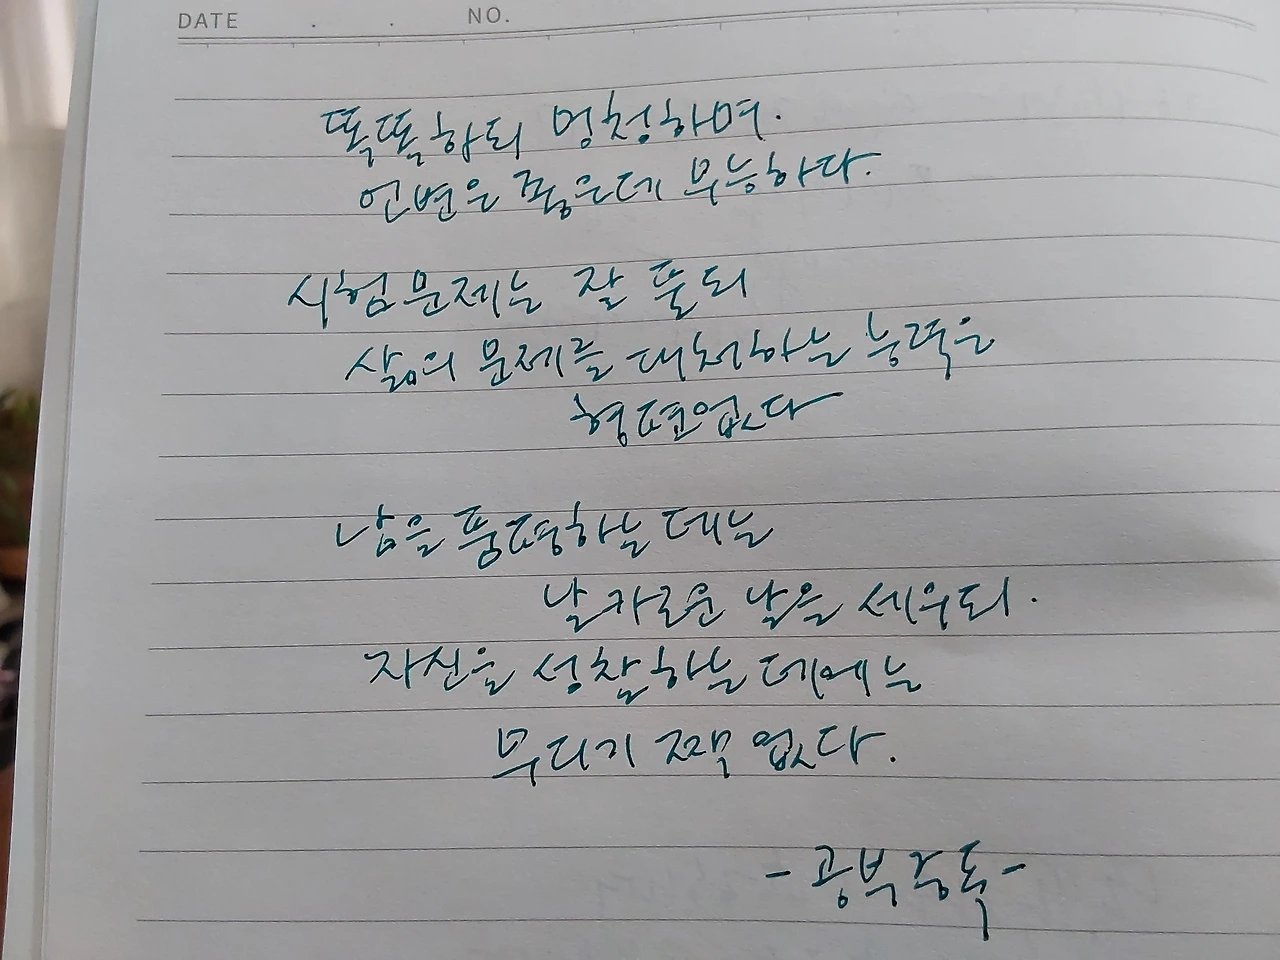 DATE . . NO.
똑똑하되 멍청하며.
언변은 좋은데 무능하다.
시험문제는 잘 풀되
삶의 문제를 대처하는 능력은
형편없다
남을 품평하는 데는
날카로운 날을 세우되.
자신을 성찰하는 데에는
무디기 짝 없다.
- 공부중독 -